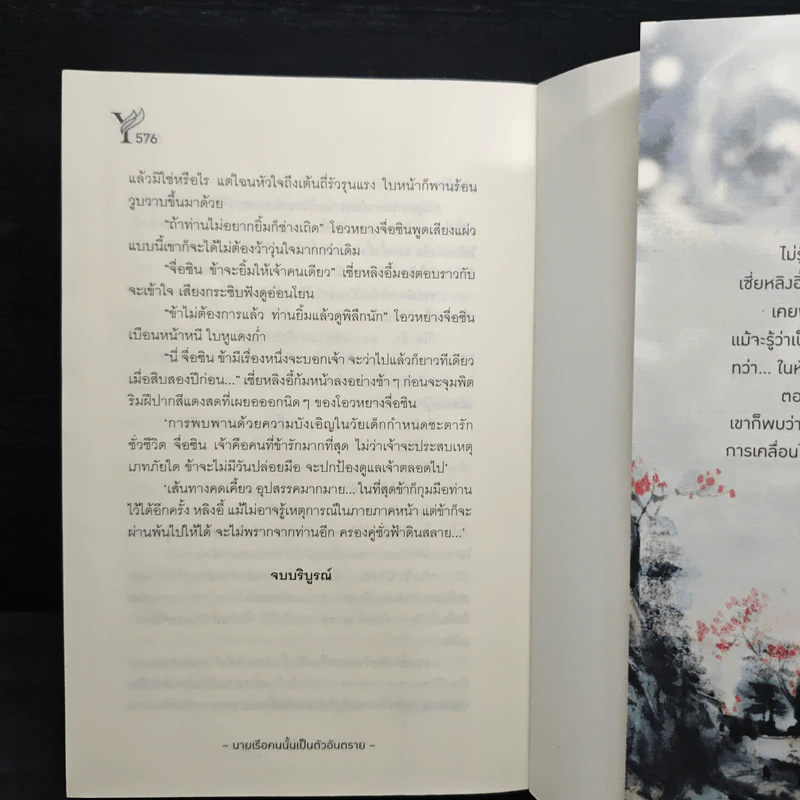 Y 576
แล้วมิใช่หรือไร แต่ไฉนหัวใจถึงเต้นถี่รัวรุนแรง ใบหน้าก็พานร้อน
วูบวาบขึ้นมาด้วย
“ถ้าท่านไม่อยากยิ้มก็ช่างเถิด” โอวหยางจื่อซินพูดเสียงแผ่ว
แบบนี้เขาก็จะได้ไม่ต้องว้าวุ่นใจมากกว่าเดิม
“จื่อซิน ข้าจะยิ้มให้เจ้าคนเดียว” เซี่ยหลิงอี้มองตอบราวกับ
จะเข้าใจ เสียงกระซิบฟังดูอ่อนโยน
“ข้าไม่ต้องการแล้ว ท่านยิ้มแล้วดูพิลึกนัก” โอวหยางจื่อซิน
เบือนหน้าหนี ใบหูแดงก่ำ
“นี่ จื่อซิน ข้ามีเรื่องหนึ่งจะบอกเจ้า จะว่าไปแล้วก็ยาวทีเดียว
เมื่อสิบสองปีก่อน...” เซี่ยหลิงอี้ก้มหน้าลงอย่างช้าๆ ก่อนจะจุมพิต
ริมฝีปากสีแดงสดที่เผยอออกนิดๆ ของโอวหยางจื่อซิน
‘การพบพานด้วยความบังเอิญในวัยเด็กกำหนดชะตารัก
ชั่วชีวิต จื่อซิน เจ้าคือคนที่ข้ารักมากที่สุด ไม่ว่าเจ้าจะประสบเหตุ
เภทภัยใด ข้าจะไม่มีวันปล่อยมือ จะปกป้องดูแลเจ้าตลอดไป’
‘เส้นทางคดเคี้ยว อุปสรรคมากมาย... ในที่สุดข้าก็กุมมือท่าน
ไว้ได้อีกครั้ง หลิงอี้ แม้ไม่อาจรู้เหตุการณ์ในภายภาคหน้า แต่ข้าก็จะ
ผ่านพ้นไปให้ได้ จะไม่พรากจากท่านอีก ครองคู่ชั่วฟ้าดินสลาย...’
จบบริบูรณ์
~ นายเรือคนนั้นเป็นตัวอันตราย ~
ไม่รู้
เซี่ยหลิงอี้
เคย
แม้จะรู้ว่าเป็
ทว่า... ในห้
ตอ
เขาก็พบว่า
การเคลื่อนไ